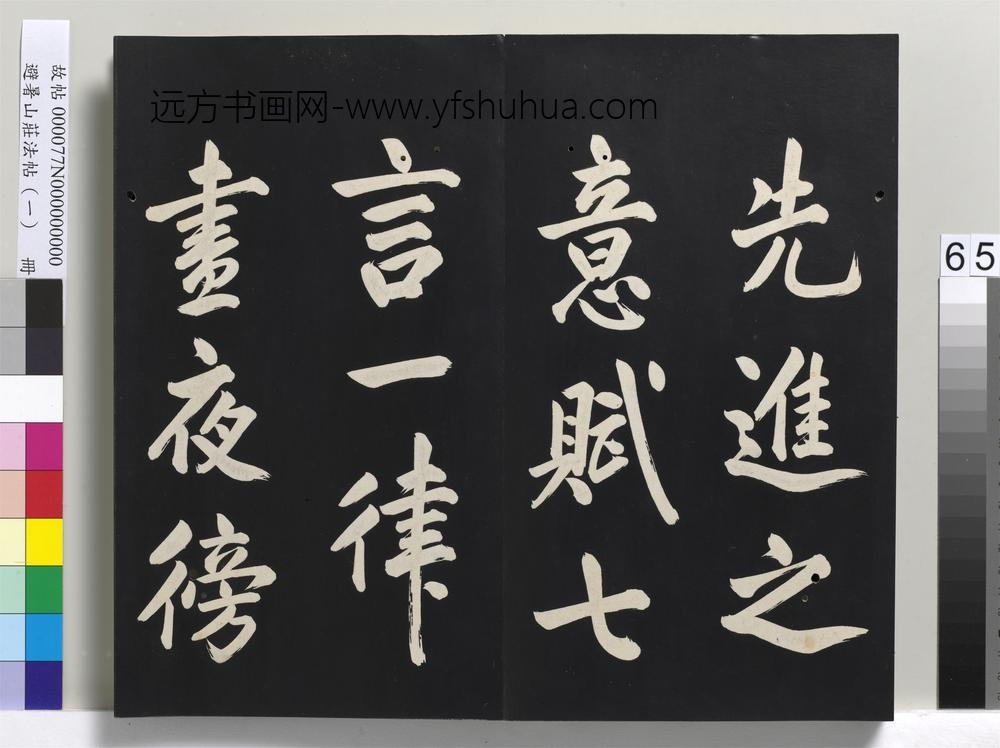 远方书画网-www.yfshuhua.com
先進之
意賦七
言一律
晝夜徬
故帖 000077N000000000
避暑山莊法帖（一） 冊
65